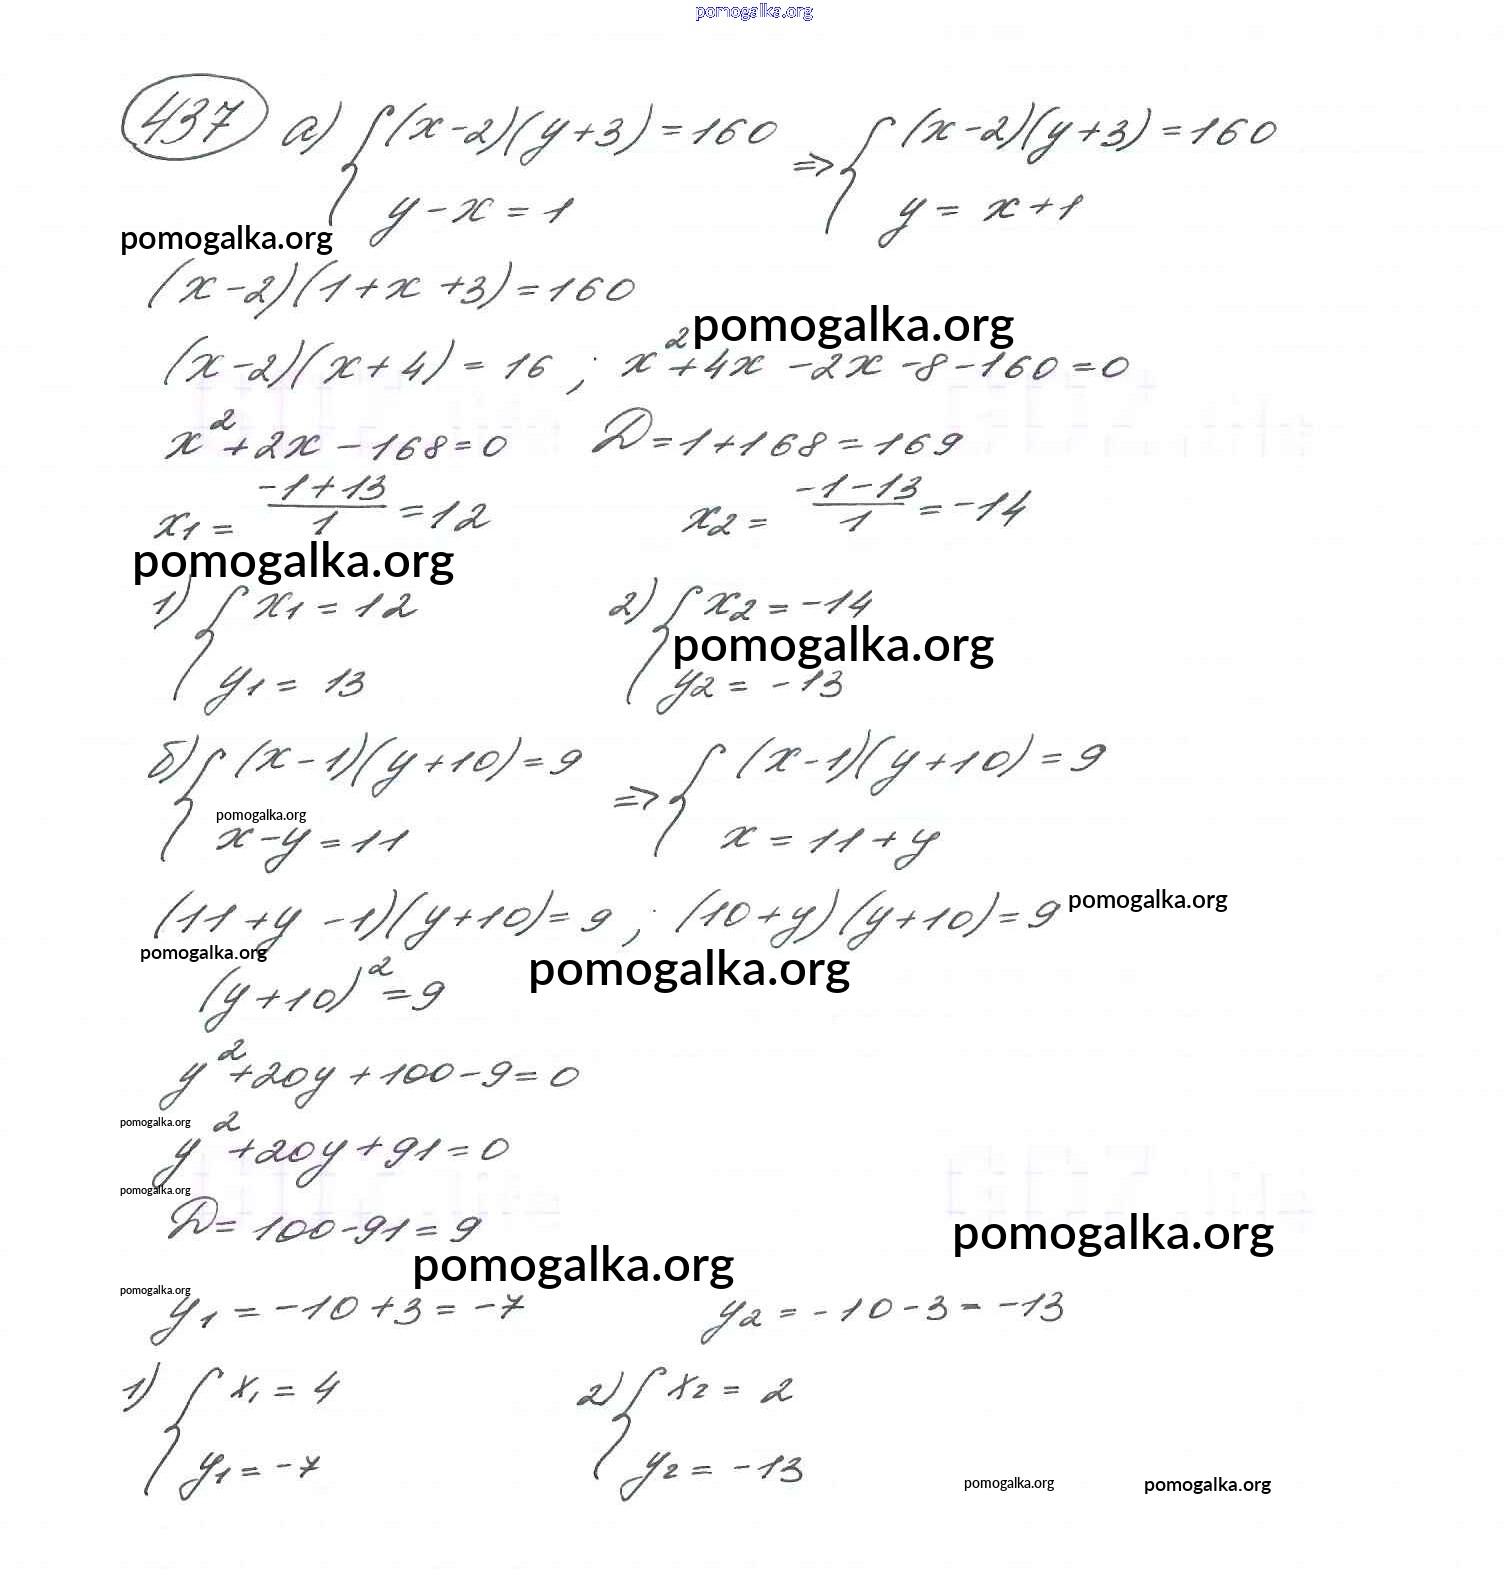 pomogalka.org
437 а) { (x-2)(y+3)=160 => { (x-2)(y+3)=160
y-x=1 y= x+1
pomogalka.org
(x-2)(1+x+3)=160
pomogalka.org
(x-2)(x+4)= 16 ; x²+4x-2x-8-160=0
x²+2x-168=0 D=1+168=169
x₁= (-1+13)/1 =12 x₂= (-1-13)/1 =-14
pomogalka.org
1) { x₁=12 2) { x₂=-14
pomogalka.org
y₁= 13 y₂= -13
б) { (x-1)(y+10)=9 => { (x-1)(y+10)=9
pomogalka.org
x-y=11 x=11+y
(11+y-1)(y+10)=9 ; (10+y)(y+10)=9 pomogalka.org
pomogalka.org pomogalka.org
(y+10)²=9
y²+20y+100-9=0
pomogalka.org
y²+20y+91=0
pomogalka.org
D=100-91=9
pomogalka.org
pomogalka.org
pomogalka.org
y₁=-10+3=-7 y₂=-10-3=-13
1) { x₁=4 2) { x₂= 2
y₁=-7 y₂=-13
pomogalka.org pomogalka.org